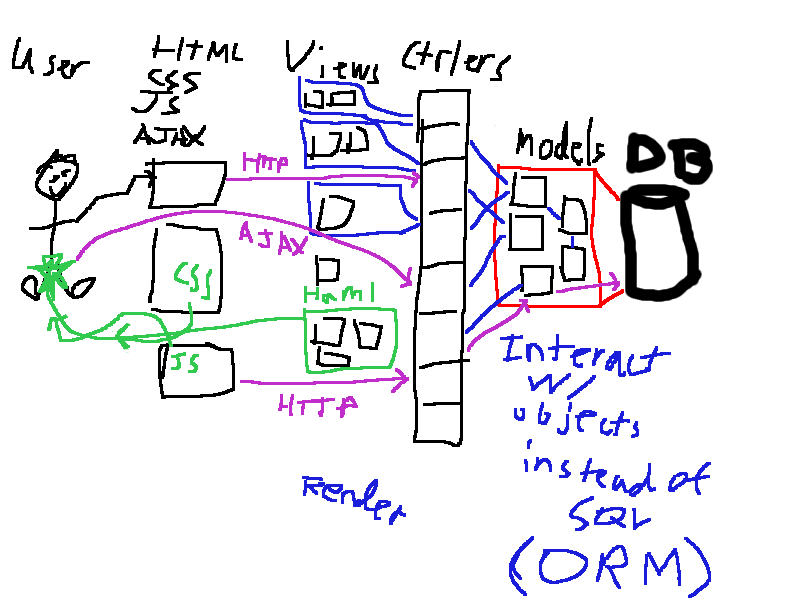 User
HTML
CSS
JS
AJAX
Views
Ctrlers
Models
DB
HTTP
AJAX
CSS
Haml
JS
HTTP
Interact
w/
objects
instead of
SQL
(ORM)
Render